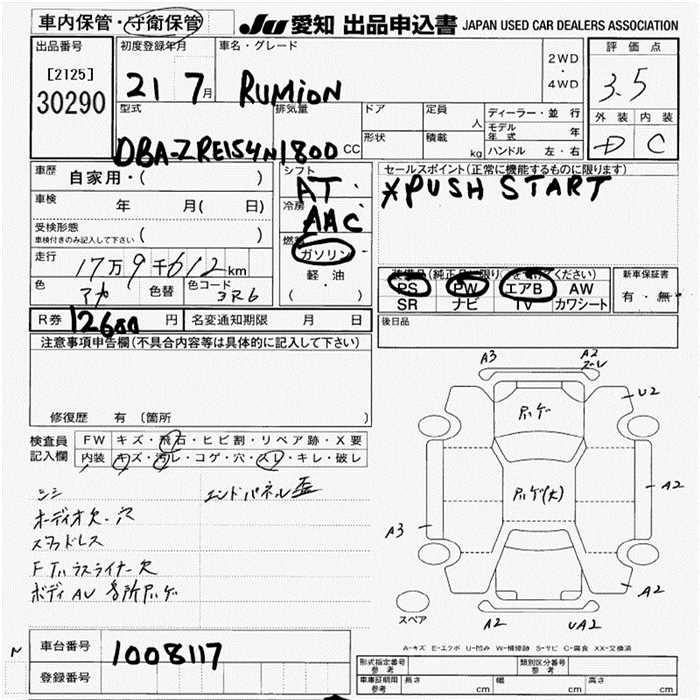 車内保管・守衛保管
JU 愛知 出品申込書 JAPAN USED CAR DEALERS ASSOCIATION
出品番号
[2125]
30290
初度登録年月
21 7月
車名・グレード
RUMION
2WD
・
4WD
評価点
3.5
外装 内装
D C
型式
DBA-ZRE154N
排気量
1800 CC
ドア
定員
人
形状
積載
kg
ディーラー・並行
モデル年式 年
ハンドル 左・右
車歴
自家用・( )
車検 年 月( 日)
受検形態
車検付きのみ記入して下さい ( )
走行
17万9千612km
色
色替
色コード
3R6
シフト
AT
冷房
AAC
燃料
ガソリン
軽・油
( )
セールスポイント(正常に機能するものに限ります)
※PUSH START
装備品(純正品に限り を付けてください)
PS PW エアB AW
SR ナビ TV カワシート
新車保証書
有・無
後日品
R券 12600 円
名変通知期限 月 日
注意事項申告欄(不具合内容等は具体的に記入して下さい)
修復歴 有(箇所 )
検査員
記入欄
FW キズ・飛石・ヒビ割・リペア跡・X要
内装 キズ・汚レ・コゲ・穴・スレ・キレ・破レ
シミ
エンドパネル歪
オーディオ欠・穴
スタッドレス
Fインナーライナー欠
ボディAU 各所ハゲ
A3
A2
U2
ハゲ
ハゲ(大)
A2
A3
A2
A2
UA2
スペア
A-キズ E-エクボ U-凹み W-補修跡 S-サビ C-腐食 XX-交換済
N
車台番号
1008117
登録番号
形式指定番号
参考
類別区分番号
参考
車庫証明用
参考
長さ cm
幅 cm
高さ cm